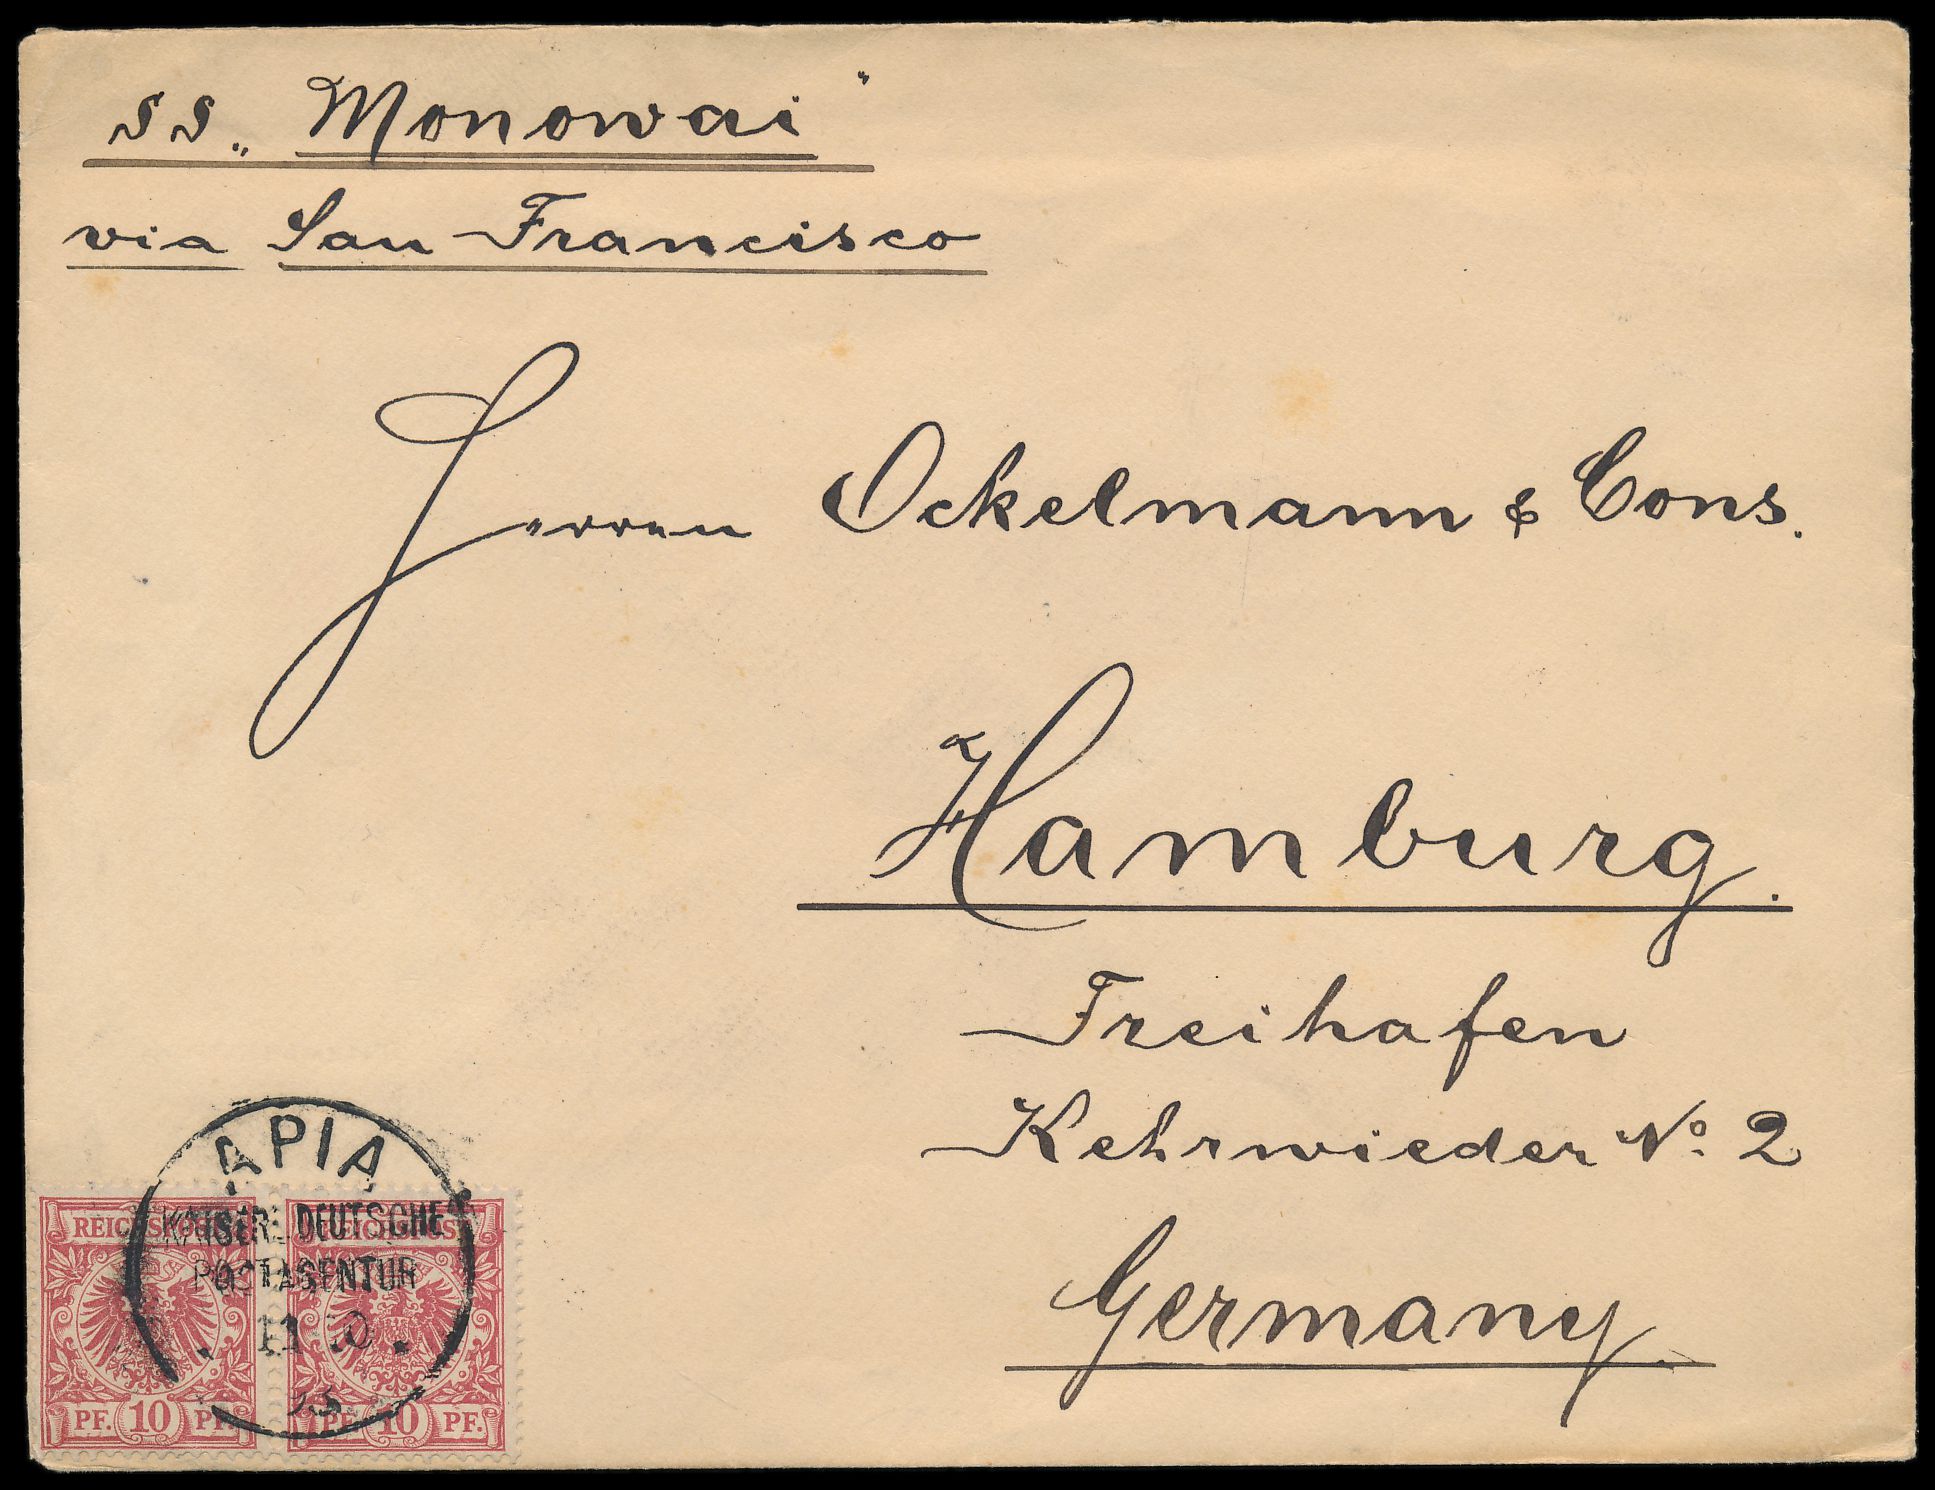 SS „Monowai“
via San Francisco
Herren Ockelmann & Cons.
Hamburg.
Freihafen
Kehrwieder No. 2
Germany.
APIA
KAISERL. DEUTSCHE
POSTAGENTUR
11 10
93
REICHSPOST
PF. 10 PF.
REICHSPOST
PF. 10 PF.